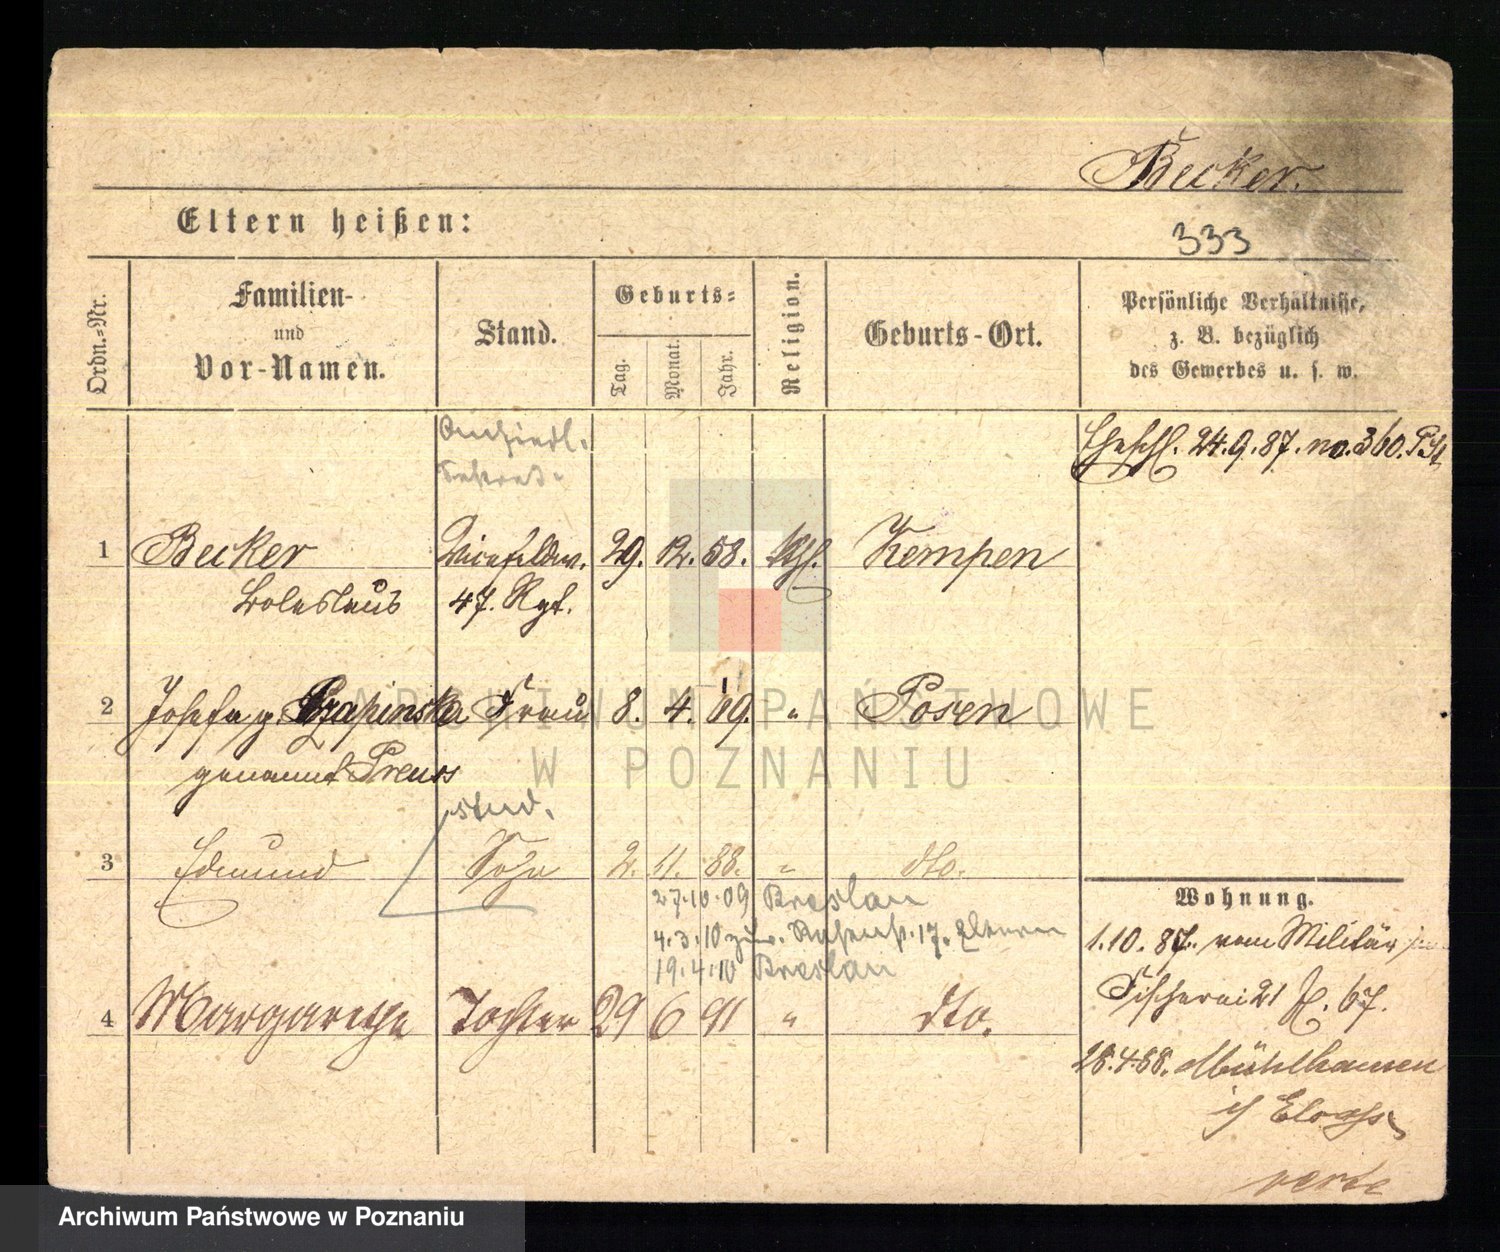 Becker.
Eltern heißen:
333
Ordn.-Nr.
Familien-
und
Vor-Namen.
Stand.
Geburts-
Tag.
Monat.
Jahr.
Religion.
Geburts-Ort.
Persönliche Verhältnisse,
z. B. bezüglich
des Gewerbes u. s. w.
Eheschl. 24.9.87. no. 360. PSt
1 Becker Vicefeldw. 29. 12. 58. kth. Kempen
Boleslaus 47. Rgt.
2 Josefa g. Czapinska Frau 8. 4. 69. " Posen
genannt Preuss
stud.
3 Edmund Sohn 2. 11. 88. " dto.
27.10.09 Breslau
4.3.10 zur. 17. Eltern
19.4.10 Breslau
4 Margarethe Tochter 29 6 91 " dto.
Wohnung.
1.10.87. vom Militär
Fischerei 21 H. 67.
28.4.88. Mühlhausen
i/ Elsass
verte
ARCHIWUM PAŃSTWOWE
W POZNANIU
Archiwum Państwowe w Poznaniu